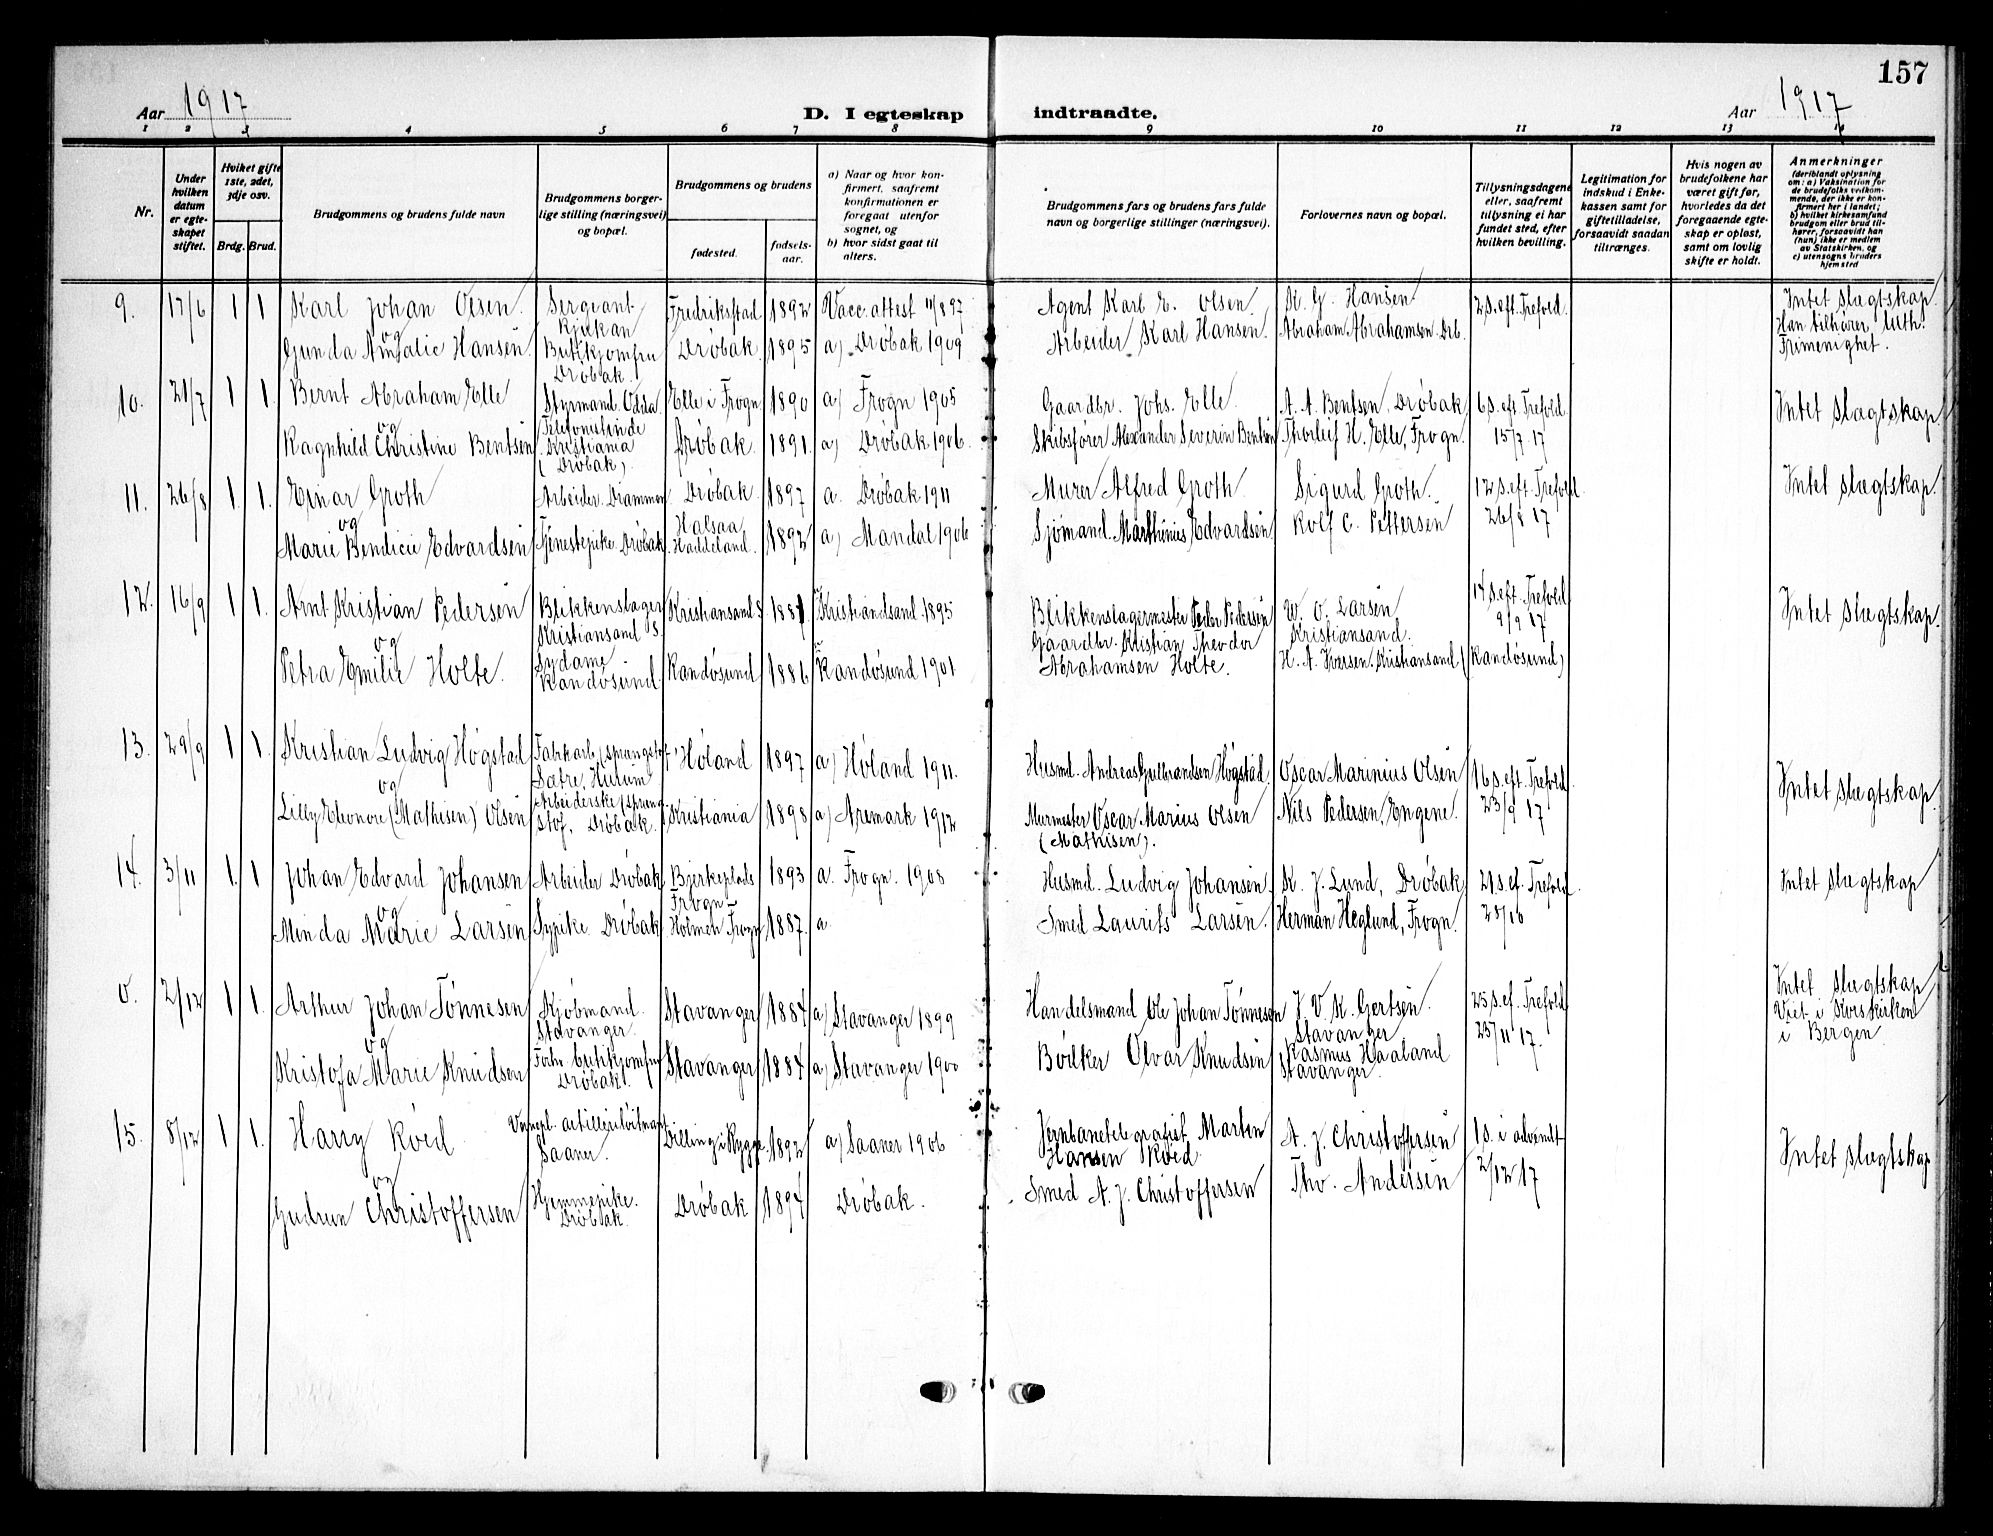 157
Aar 1917 D. I egteskap indtraadte. Aar 1917
1 2 3 4 5 6 7 8 9 10 11 12 13 14
Nr.
Under hvilken datum er egteskapet stiftet.
Hviket gifte 1ste, 2det, 3dje osv.
Brdg. Brud.
Brudgommens og brudens fulde navn
Brudgommens borgerlige stilling (næringsvei) og bopæl.
Brudgommens og brudens
fødested.
fødselsaar.
a) Naar og hvor konfirmert, saafremt konfirmationen er foregaat utenfor sognet, og
b) hvor sidst gaat til alters.
Brudgommens fars og brudens fars fulde navn og borgerlige stillinger (næringsvei).
Forlovernes navn og bopæl.
Tillysningsdagene eller, saafremt tillysning ei har fundet sted, efter hvilken bevilling.
Legitimation for indskud i Enkekassen samt for giftetilladelse, forsaavidt saadan tiltrænges.
Hvis nogen av brudefolkene har været gift før, hvorledes da det foregaaende egteskap er opløst, samt om lovlig skifte er holdt.
Anmerkninger (deriblandt oplysning om: a) Vaksination for de brudefolks vedkommende, der ikke er konfirmert her i landet; b) hvilket kirkesamfund brudgom eller brud tilhører, forsaavidt han (hun) ikke er medlem av Statskirken, og c) utensogns bruders hjemsted
9. 17/6 1 1 Karl Johan Olsen Sergeant Rjukan Fredriksstad 1892 Vacc. attest 11/8 97 Agent Karl E. Olsen K. G. Hansen 2 S. eft. Trefold. Intet slægtskap. Han tilhører luth. Frimenighet.
og
Gunda Amalie Hansen Butikjomfru Drøbak. Drøbak. 1895 a) Drøbak 1909 Arbeider Karl Hansen. Abraham Abrahamsen. Drb.
10. 21/7 1 1. Bernt Abraham Elle Styrmand. Odda. Elle i Frogn 1890 a) Frogn 1905 Gaardbr. Johs. Elle. A. A. Bentsen, Drøbak 6 S. eft. Trefold. 15/7 17 Intet slægtskap
og
Ragnhild Christine Bentsen Kristiania (Drøbak). Drøbak. 1891. a) Drøbak 1906. Skibsfører Alexander Severin Bentsen Thorleif H. Elle, Frogn.
11. 26/8 1. 1. Einar Groth Arbeider. Drammen Drøbak. 1897 a. Drøbak 1911 Murer Alfred Groth. Sigurd Groth. 12 S. eft. Trefold. 26/8 17 Intet slægtskap.
og
Marie Bendicte Edvardsen Tjenestepike. Drøbak Halsaa Haddeland. 1892 a) Mandal 1906 Sjømand. Marthinius Edvardsen Rolf C. Pettersen
12. 16/9 1 1. Arnt Kristian Pedersen Blikkenslager Kristiansand S. Kristiansand S 1881 Kristiansand 1895 Blikkenslagermester Peder Pedersen W. O. Larsen Kristiansand. 14 S. eft. Trefold 9/9 17 Intet slægtskap.
og
Petra Emilie Holte. Sydame Randøsund. Randøsund 1886 Randøsund 1901 Gaardbr. Kristian Theodor Abrahamsen Holte. H. A. Iversen, Kristiansand (Randøsund)
13. 29/9 1 1. Kristian Ludvig Høgstad Fabrkarb. (sprængstof) Sætre, Hurum Høland 1897 a) Høland 1911. Husmd. Andreas Gulbrandsen Høgstad. Oscar Marinius Olsen 16 S. eft. Trefold. 23/9 17 Intet slægtskap.
og
Lilly Eleonore (Mathisen) Olsen Arbeiderske (sprængstof, Drøbak. Kristiania 1898 a) Aremark 1912 Murmester Oscar Marius Olsen (Mathisen). Nils Pedersen, Engene.
14. 3/11 1. 1 Johan Edvard Johansen Arbeider Drøbak Bjerkeplads Frogn 1893 a. Frogn. 1908 Husmd. Ludvig Johansen. K. J. Lund, Drøbak 21 S. ef. Trefold. 28/10 Intet slægtskap
og
Minda Marie Larsen Sypike. Drøbak Holmen Frogn 1887. a Smed Laurits Larsen. Herman Heglund, Frogn.
0. 2/12 1 1. Arthur Johan Tønnesen Kjøbmand. Stavanger. Stavanger 1884 a) Stavanger 1899 Handelsmand Ole Johan Tønnesen J. V. K. Gertsen. Stavanger 25 S. ef. Trefold 25/11 17. Intet slægtskap Viet i Korskirken i Bergen.
og
Kristofa Marie Knudsen Forh. butikjomfru Drøbak. Stavanger 1884 a) Stavanger 1900 Bødker Olvar Knudsen Rasmus Haaland Stavanger.
15. 8/12 1 1. Harry Kved Vernepl. artilleriløitnant Saaner. Dilling i Rygge. 1892 a) Saaner 1906 Jernbanetelegrafist Martin Hansen Kved A. J. Christoffersen 1 S. i advendt 2/12 17 Intet slægtskap
og
Gudrun Christoffersen Hjemmepike. Drøbak. Drøbak 1894 Drøbak. Smed A. J. Christoffersen Tho. Andersen